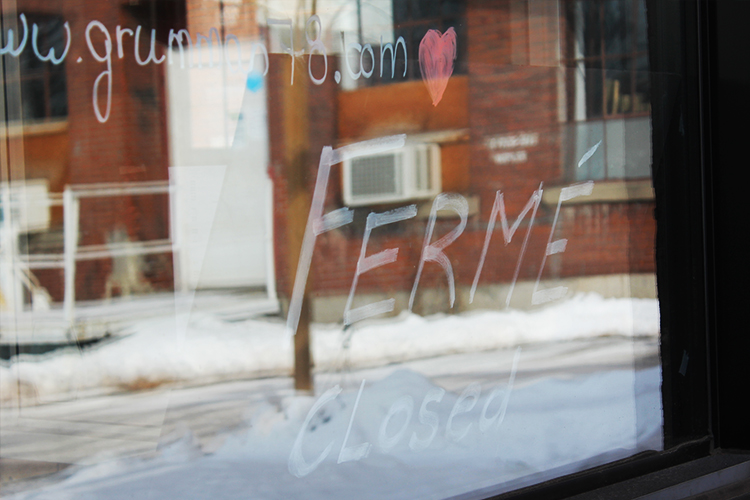 www.grumman78.com
FERMÉ
CLosed